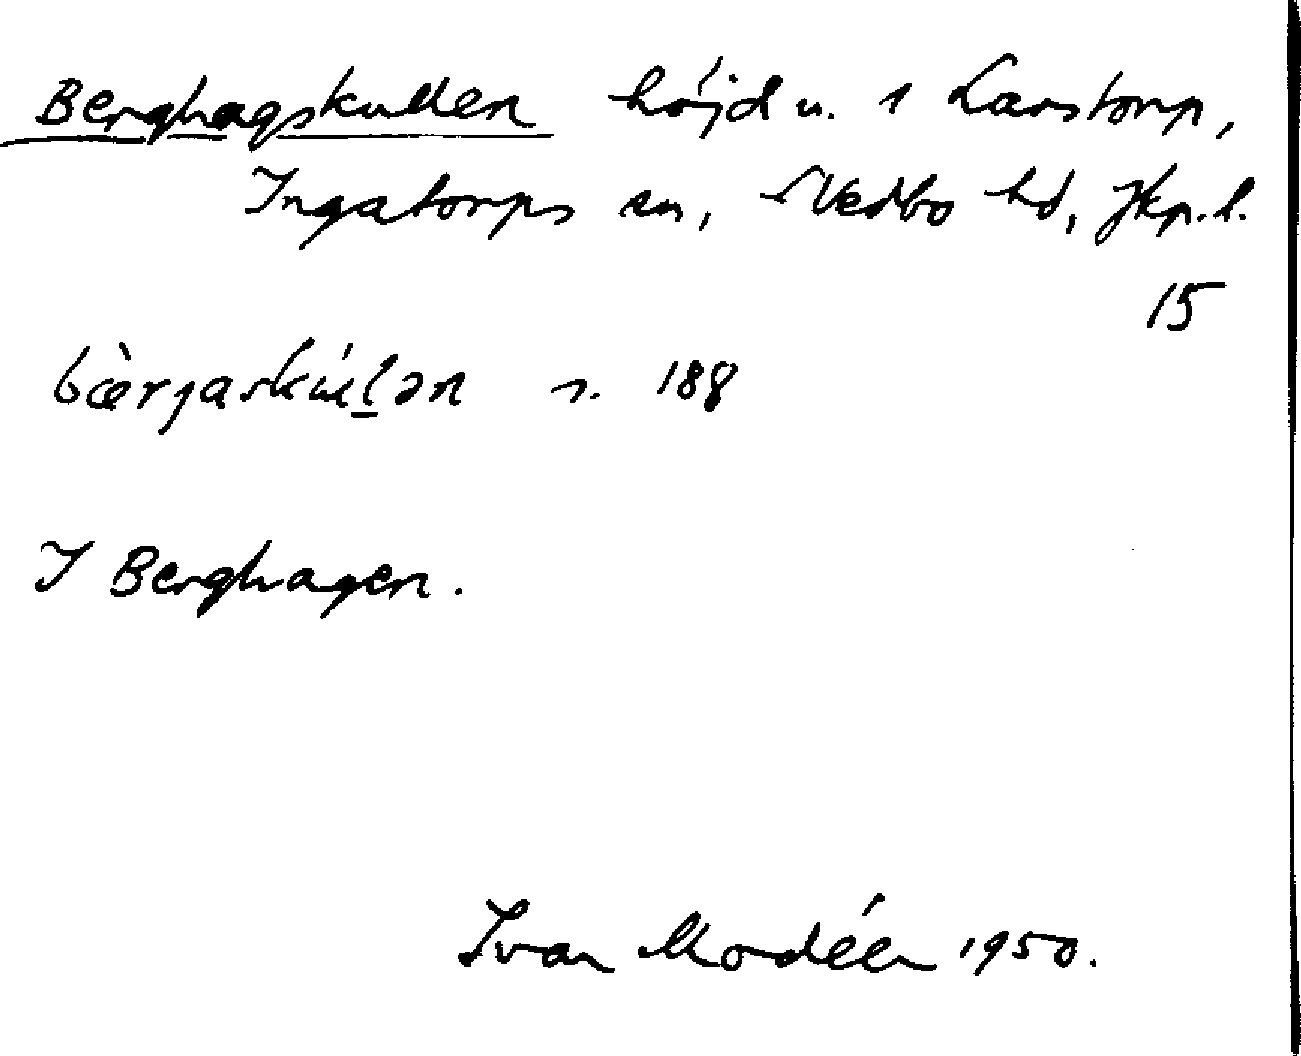 Berghagskullen höjd u. 1 Larstorp,
Ingatorps sn, N Vedbo hd, Jkp. l.
15
bæ̀rjaskúl̲ən s. 188
I Berghagen.
Ivar Modéer 1950.